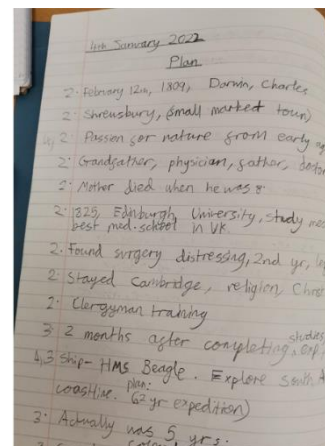 4th January 2022
Plan
2· February 12th, 1809, Darwin, Charles
2· Shrewsbury, (small market town)
4, 2· Passion for nature from early
2· Grandfather, physician, father,
2· Mother died when he was 8·
2· 1825, Edinburgh University, study
best med. school in UK.
2· Found surgery distressing, 2nd yr,
2· Stayed Cambridge, religion,
2· Clergyman training
3· 2 months after completing studies,
4, 3 Ship - HMS Beagle. Explore South
coastline. plan:
(2 yr expedition)
3· Actually was 5 yrs.